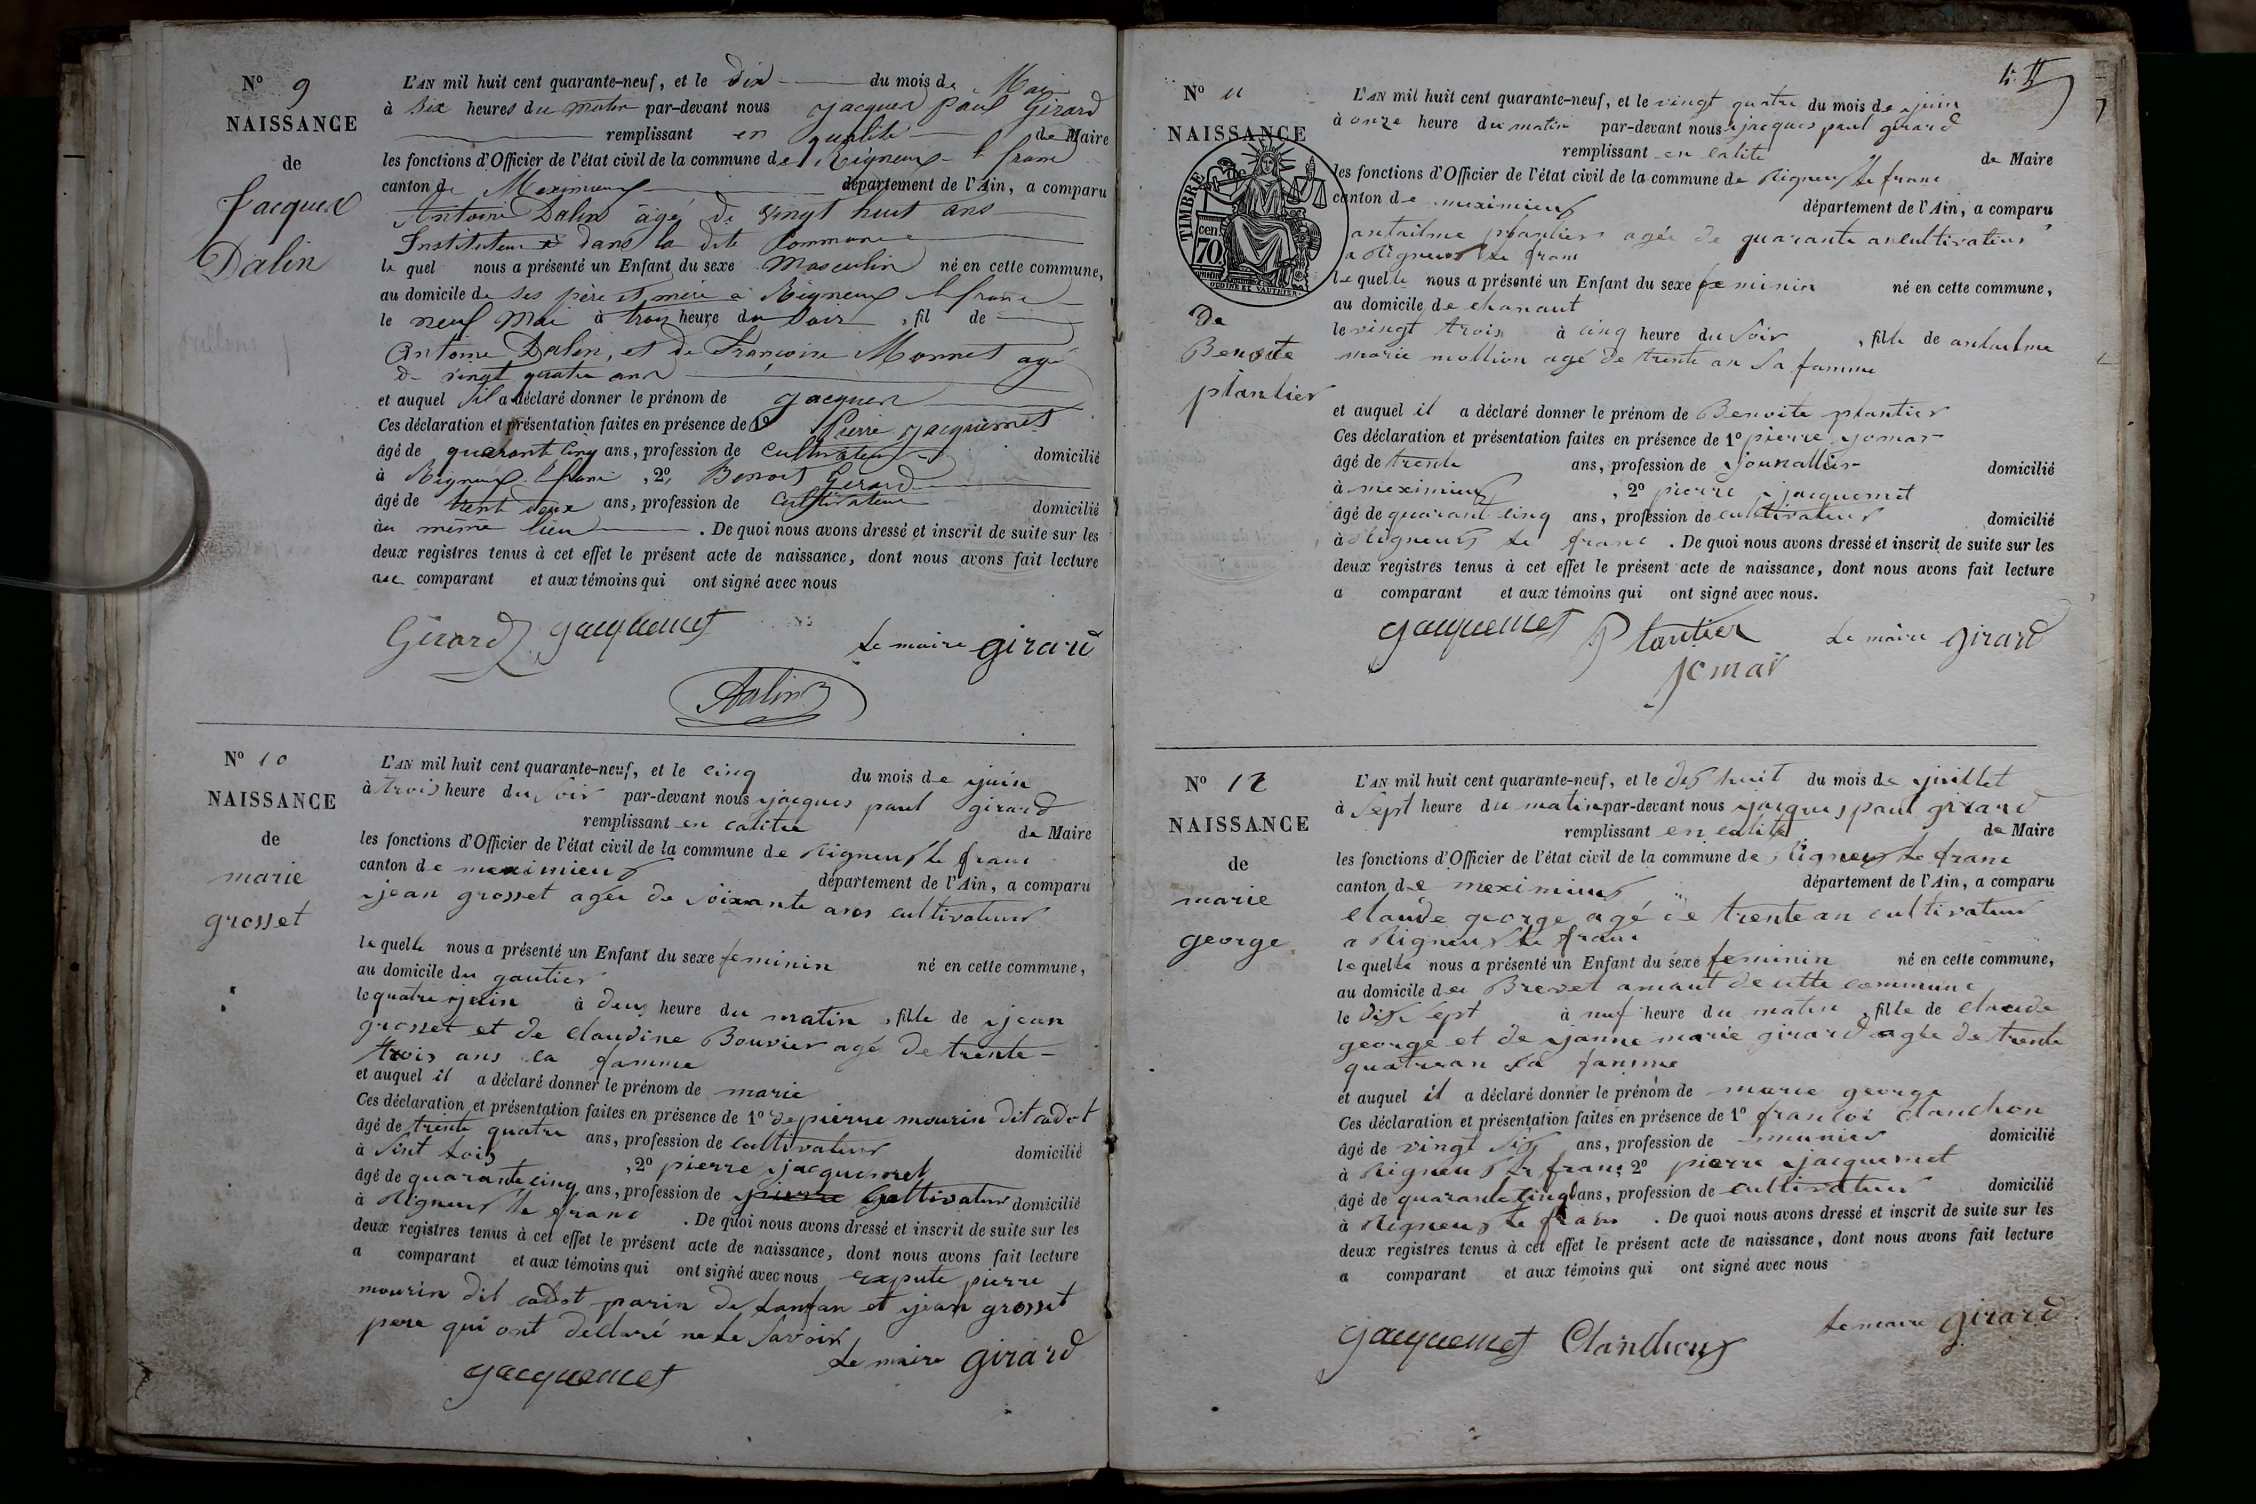 N° 9
NAISSANCE
de
Jacques
Dalin
L'AN mil huit cent quarante-neuf, et le dix du mois de Mai
à Six heures du matin par-devant nous Jacques paul Girard
remplissant en qualité de Maire
les fonctions d'Officier de l'état civil de la commune de Rigneux le franc
canton de Meximieux département de l'Ain, a comparu
Antoine Dalin âgé de vingt huit ans
Instituteur dans la dite Commune
le quel nous a présenté un Enfant du sexe Masculin né en cette commune,
au domicile de ses père et mère à Rigneux le franc
le neuf Mai à trois heure du Soir , fil de
Antoine Dalin, et de Françoise Monnet agé
de vingt quatre ans
et auquel il a déclaré donner le prénom de Jacques
Ces déclaration et présentation faites en présence de 1° Pierre Jacquemet
âgé de quarant cinq ans, profession de Cultivateur domicilié
à Rigneux le franc , 2° Benoit Gerard
âgé de trent deux ans, profession de Cultivateur domicilié
au même lieu . De quoi nous avons dressé et inscrit de suite sur les
deux registres tenus à cet effet le présent acte de naissance, dont nous avons fait lecture
au comparant et aux témoins qui ont signé avec nous
Gérard jacquemet le maire girard
Dalin
N° 10
NAISSANCE
de
marie
grosset
L'AN mil huit cent quarante-neuf, et le cinq du mois de juin
à trois heure du soir par-devant nous jacques paul girard
remplissant en calitée de Maire
les fonctions d'Officier de l'état civil de la commune de Rigneux le franc
canton de meximieux département de l'Ain, a comparu
jean grosset agée de soixante ans cultivateur
le quelle nous a présenté un Enfant du sexe feminin né en cette commune,
au domicile du gautier
le quatre juin à deux heure du matin , fille de jean
grosset et de claudine Bouvier agé de trente
trois ans sa famme
et auquel il a déclaré donner le prénom de marie
Ces déclaration et présentation faites en présence de 1° de pierre mourin dit cadot
âgé de trente quatre ans, profession de cultivateur domicilié
à Sint Lois , 2° pierre jacquemet
âgé de quarante cinq ans, profession de pierre Cultivateur domicilié
à Rigneux le franc . De quoi nous avons dressé et inscrit de suite sur les
deux registres tenus à cet effet le présent acte de naissance, dont nous avons fait lecture
a comparant et aux témoins qui ont signé avec nous expute pierre
mourin dit cadot parin de lanfan et jean grosset
pere qui ont declaré ne le savoir
jacquemet le maire girard
N° 11
NAISSANCE
TIMBRE
cen
70
de
Benoite
plantier
L'AN mil huit cent quarante-neuf, et le vingt quatre du mois de juin
à onze heure du matin par-devant nous jacques paul girard
remplissant en calite de Maire
les fonctions d'Officier de l'état civil de la commune de Rigneux le franc
canton de meximieux département de l'Ain, a comparu
antailme plantier agée de quarante an cultivateur
a Rigneux le franc
le quelle nous a présenté un Enfant du sexe feminin né en cette commune,
au domicile de chanaut
le vingt trois à cinq heure du soir , fille de antailme
marie mollion agé de trente an sa famme
et auquel il a déclaré donner le prénom de Benoite plantier
Ces déclaration et présentation faites en présence de 1° pierre jomar
âgé de trente ans, profession de journallier domicilié
à meximieux , 2° pierre jacquemet
âgé de quarant cinq ans, profession de cultivateur domicilié
à Rigneux le franc . De quoi nous avons dressé et inscrit de suite sur les
deux registres tenus à cet effet le présent acte de naissance, dont nous avons fait lecture
a comparant et aux témoins qui ont signé avec nous.
jacquemet Plantier le maire girard
jomar
N° 12
NAISSANCE
de
marie
george
L'AN mil huit cent quarante-neuf, et le dix huit du mois de juillet
à sept heure du matin par-devant nous jacques paul girard
remplissant en calité de Maire
les fonctions d'Officier de l'état civil de la commune de Rigneux le franc
canton de meximieux département de l'Ain, a comparu
claude george agé de trente an cultivateur
a Rigneux le franc
le quelle nous a présenté un Enfant du sexe feminin né en cette commune,
au domicile de Brevet amaut de cette commune
le dix sept à neuf heure du matin , fille de claude
george et de janne marie girard agée de trente
quatre an sa famme
et auquel il a déclaré donner le prénom de marie george
Ces déclaration et présentation faites en présence de 1° francoi clanchon
âgé de vingt six ans, profession de munier domicilié
à Rigneux le franc 2° pierre jacquemet
âgé de quarante cinq ans, profession de cultivateur domicilié
à Rigneux le franc . De quoi nous avons dressé et inscrit de suite sur les
deux registres tenus à cet effet le présent acte de naissance, dont nous avons fait lecture
a comparant et aux témoins qui ont signé avec nous
jacquemet Clanchon le maire girard